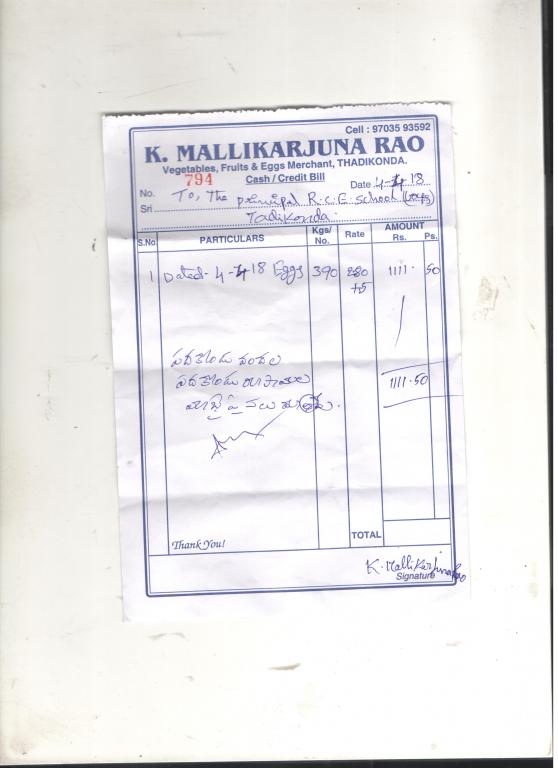 Cell : 97035 93592
K. MALLIKARJUNA RAO
Vegetables, Fruits & Eggs Merchant, THADIKONDA.
794 Cash / Credit Bill
No. Date 4-4-18
Sri To, The principal R.C.E. School (
Tadikonda.
S.No PARTICULARS Kgs/ No. Rate AMOUNT Rs. Ps.
1 Dated- 4-4-18 Eggs 390 280 +5 1111. 50
పదకొండు వందల
పదకొండు రూపాయల 1111.50
యాభై పైసలు
TOTAL
Thank You!
K. Mallikarjuna Rao
Signature